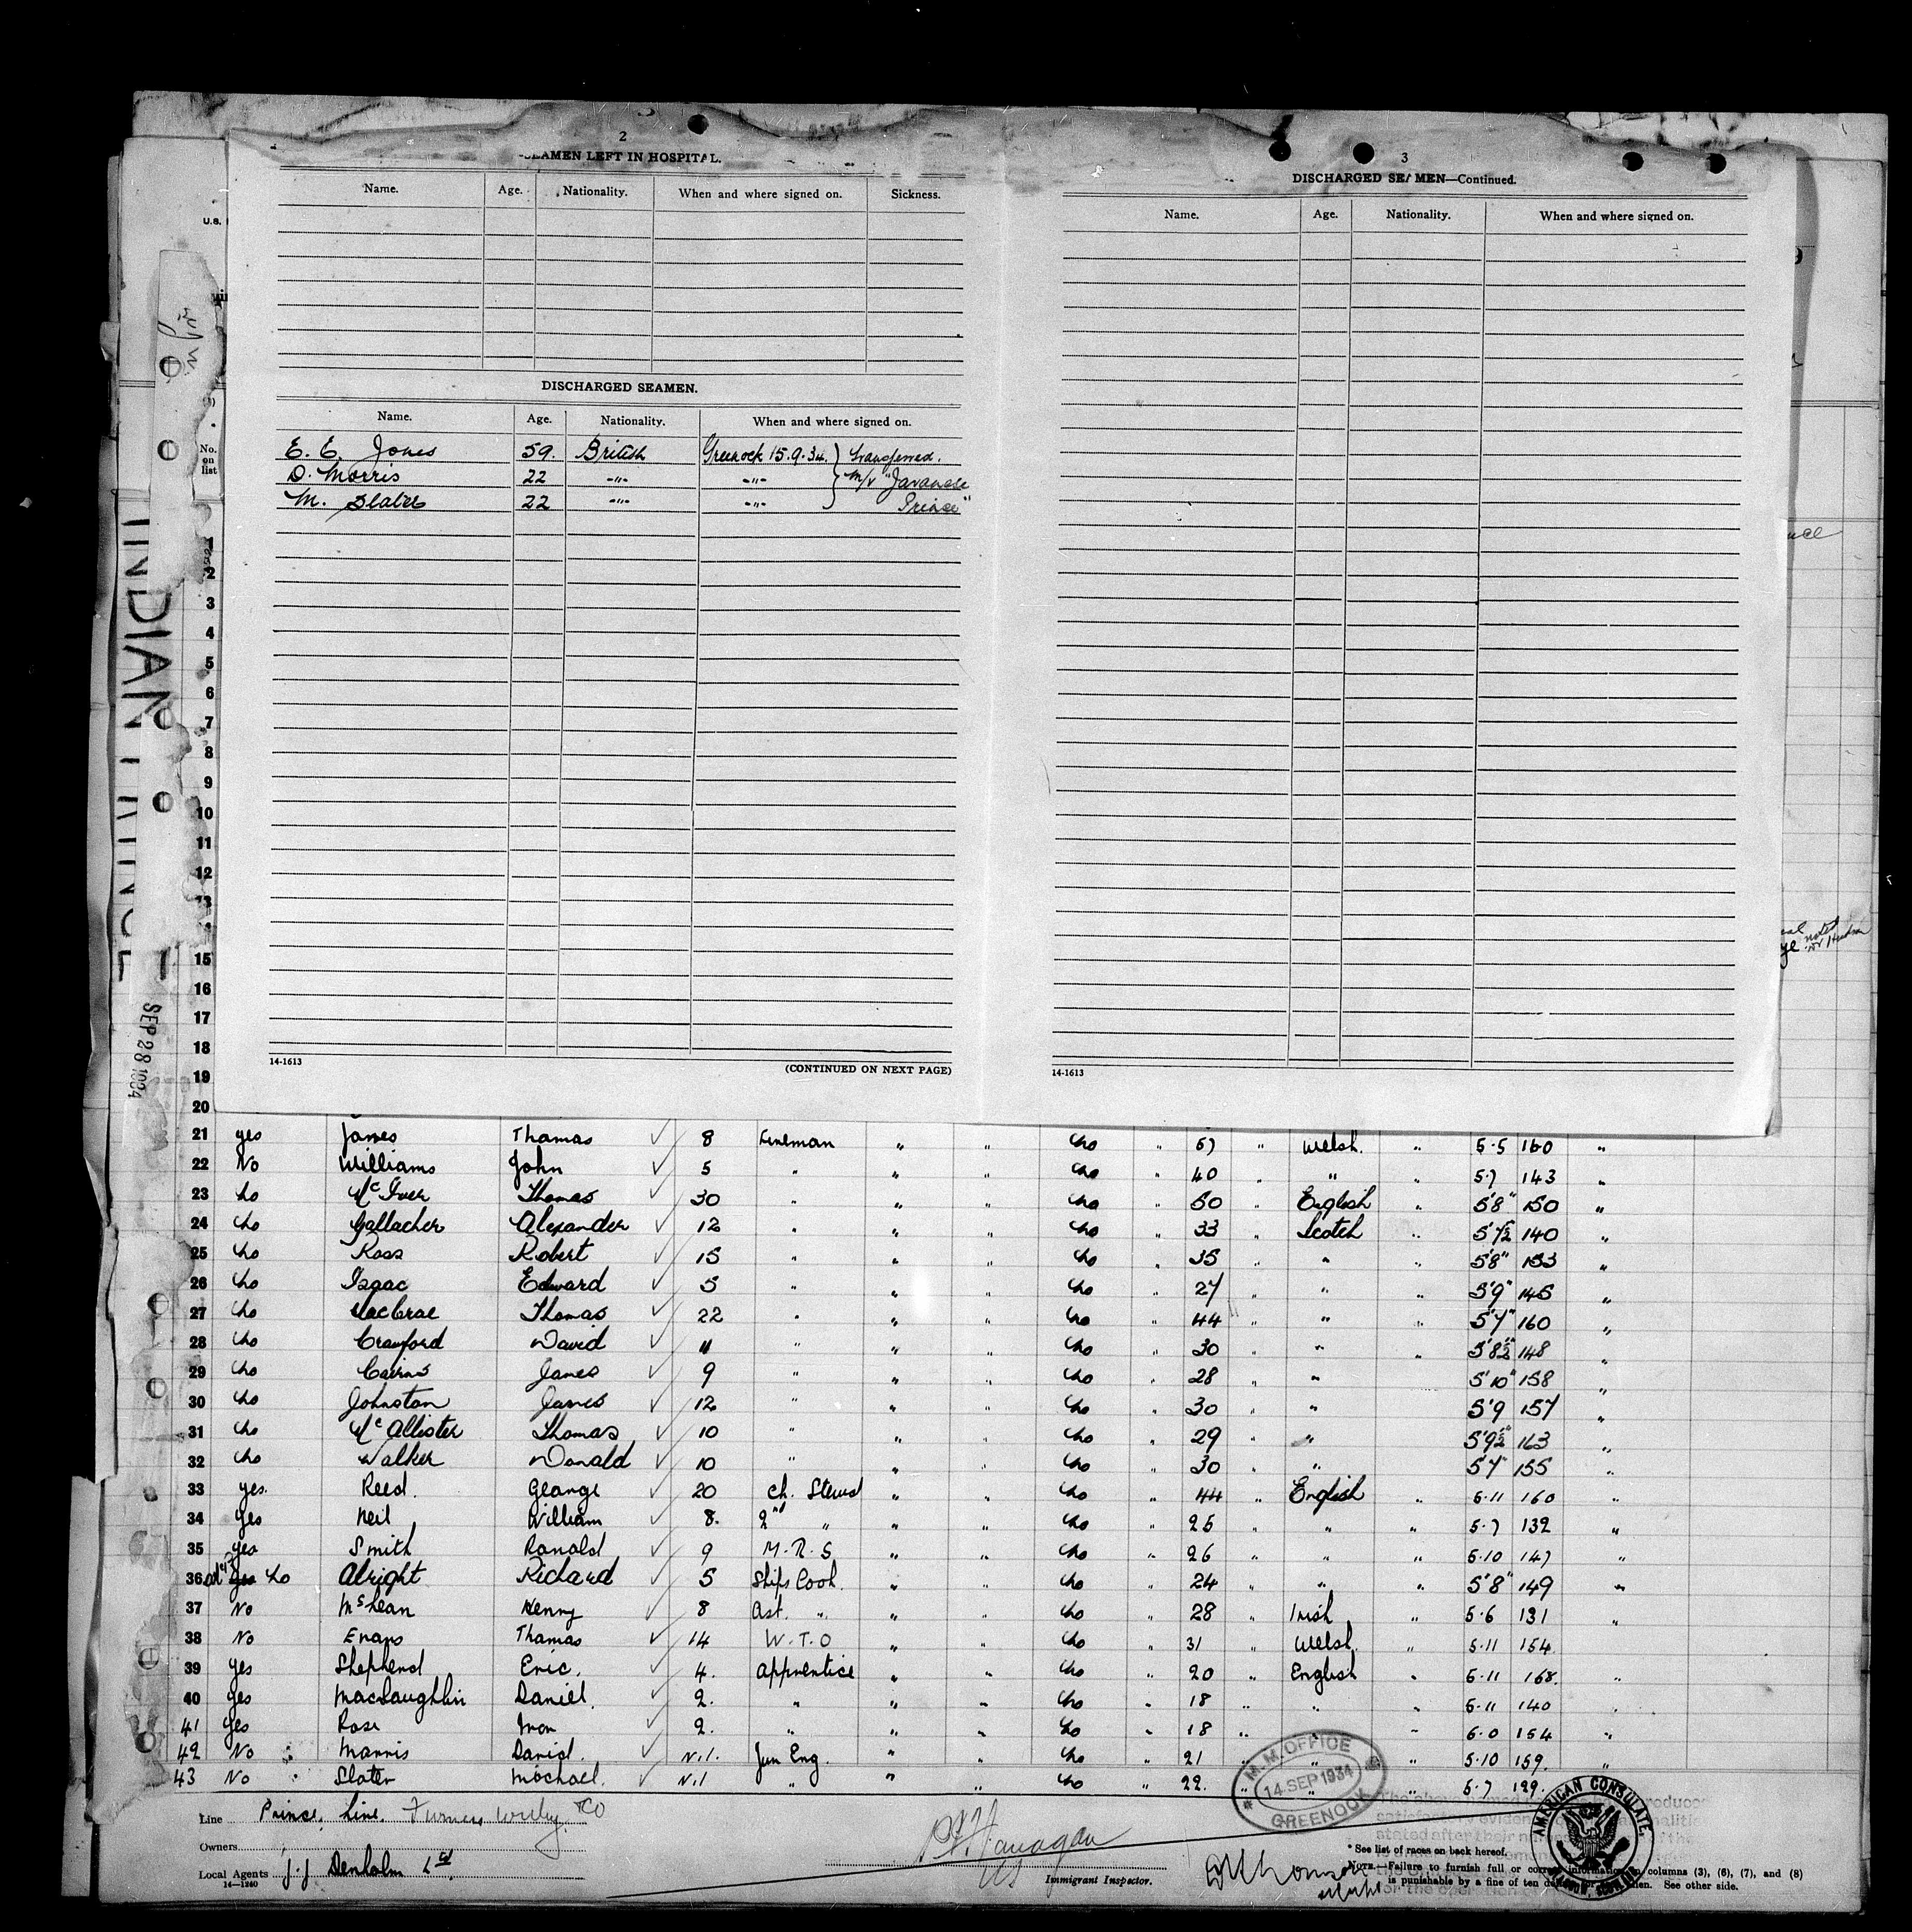 2
SEAMEN LEFT IN HOSPITAL.
Name. Age. Nationality. When and where signed on. Sickness.
DISCHARGED SEAMEN.
Name. Age. Nationality. When and where signed on.
E. E. Jones 59. British Greenock 15.9.34. } transferred.
D. Morris 22 -"- -"- } M/V "Javanese
M. Slater 22 -"- -"- } Prince"
14-1613
(CONTINUED ON NEXT PAGE)
3
DISCHARGED SEAMEN—Continued.
Name. Age. Nationality. When and where signed on.
14-1613
U.S.
No. on list
INDIAN PRINCE
SEP 28 1934
1
2
3
4
5
6
7
8
9
10
11
12
13
14
15
16
17
18
19
20
21 yes James Thomas 8 Fireman " " No " 57 " Welsh. " 5.5 160 "
22 No Williams John 5 " " " No " 40 " " " 5.7 143 "
23 No McIver Thomas 30 " " " No " 50 " English " 5'8" 150 "
24 No Gallacher Alexander 12 " " " No " 33 " Scotch " 5'7½ 140 "
25 No Ross Robert 15 " " " No " 35 " " " 5'8" 153 "
26 No Isaac Edward 5 " " " No " 27 " " " 5'9" 145 "
27 No MacCrae Thomas 22 " " " No " 44 " " " 5'7" 160 "
28 No Crawford David 11 " " " No " 30 " " " 5'8½" 148 "
29 No Cairns James 9 " " " No " 28 " " " 5'10" 158 "
30 No Johnston James 12 " " " No " 30 " " " 5'9 157 "
31 No McAllister Thomas 10 " " " No " 29 " " " 5'9½" 163 "
32 No Walker Donald 10 " " " No " 30 " " " 5'7" 155 "
33 yes. Reed. George 20 Ch. Steward " " No " 44 " English " 5.11 160 "
34 Yes Neil William 8. 2nd " " " No " 25 " " " 5.7 132 "
35 yes Smith Ronald 9 M.R.S " " No " 26 " " " 5.10 147 "
36 Yes No Alright Richard 5 Ships Cook. " " No " 24 " " " 5'8" 149 "
37 No McLean Henry 8 Ast. " " " No " 28 " Irish " 5.6 131 "
38 No Evans Thomas 14 W.T.O " " No " 31 " Welsh. " 5.11 154
39 yes Shepherd Eric. 4. Apprentice " " No " 20 " English " 5.11 168. "
40 yes MacLaughlin Daniel. 2. " " " No " 18 " " " 5.11 140 "
41 yes Rose 2. " " " No " 18 " " 6.0 154 "
42 No Morris David. Nil. Jun Eng. " " No " 21 " " " 5.10 159. "
43 No Slater Michael. Nil " " " No " 22. " " " 5.7 129. "
Line Prince Line. Furness Withy & Co
Owners
Local Agents J.J. Denholm Ltd
14—1240
Immigrant Inspector.
M.M. OFFICE
14 SEP 1934
GREENOCK
AMERICAN CONSULATE,
* See list of races on back hereof.
NOTE.—Failure to furnish full or correct information in columns (3), (6), (7), and (8)
is punishable by a fine of ten dollars for each alien. See other side.